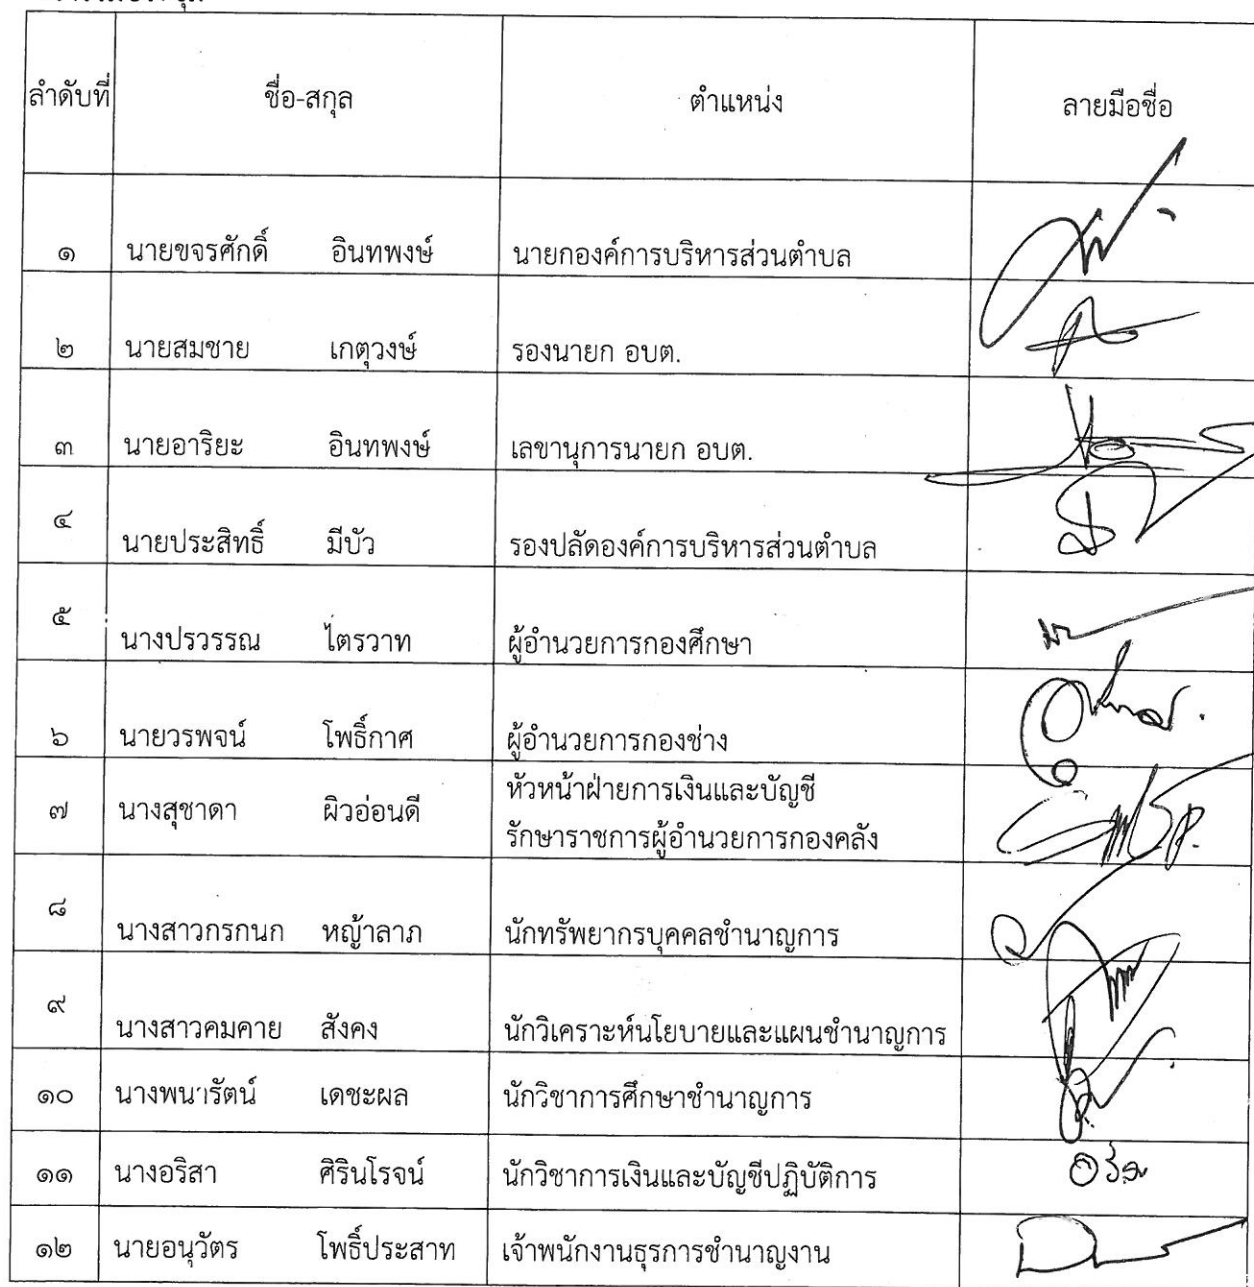 ลำดับที่ ชื่อ-สกุล ตำแหน่ง ลายมือชื่อ
๑ นายขจรศักดิ์ อินทพงษ์ นายกองค์การบริหารส่วนตำบล
๒ นายสมชาย เกตุวงษ์ รองนายก อบต.
๓ นายอาริยะ อินทพงษ์ เลขานุการนายก อบต.
๔ นายประสิทธิ์ มีบัว รองปลัดองค์การบริหารส่วนตำบล
๕ นางปรวรรณ ไตรวาท ผู้อำนวยการกองศึกษา
๖ นายวรพจน์ โพธิ์กาศ ผู้อำนวยการกองช่าง
๗ นางสุชาดา ผิวอ่อนดี หัวหน้าฝ่ายการเงินและบัญชี
รักษาราชการผู้อำนวยการกองคลัง
๘ นางสาวกรกนก หญ้าลาภ นักทรัพยากรบุคคลชำนาญการ
๙ นางสาวคมคาย สังคง นักวิเคราะห์นโยบายและแผนชำนาญการ
๑๐ นางพนารัตน์ เดชะผล นักวิชาการศึกษาชำนาญการ
๑๑ นางอริสา ศิรินโรจน์ นักวิชาการเงินและบัญชีปฏิบัติการ
๑๒ นายอนุวัตร โพธิ์ประสาท เจ้าพนักงานธุรการชำนาญงาน